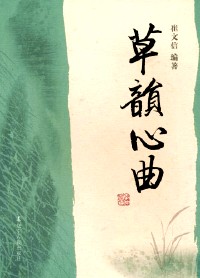 草韻心曲
崔文信 编著